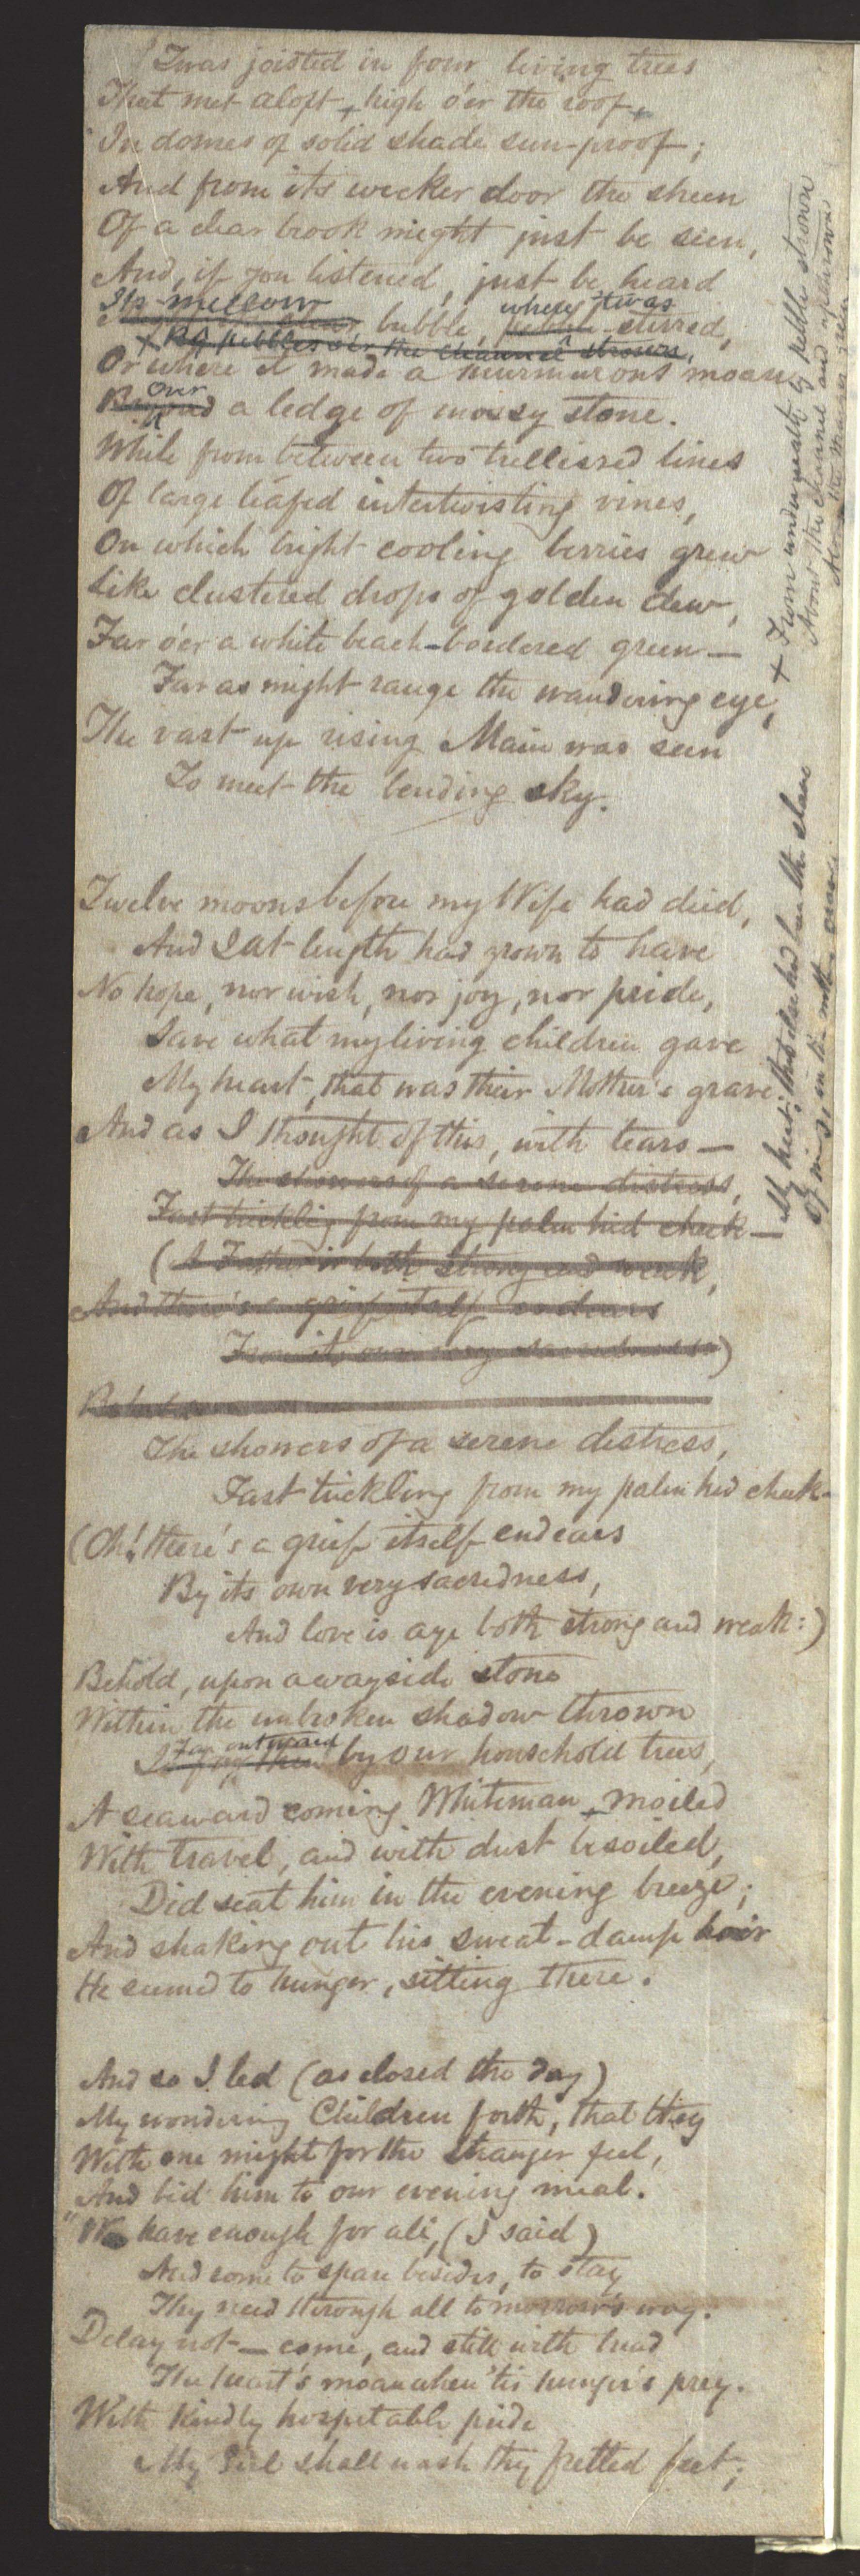 'Twas joisted in four living trees
That met aloft, high o'er the roof,
In domes of solid shade sun-proof;
And from its wicker door the sheen
Of a clear brook might just be seen,
And, if you listened, just be heard
Its mellow where 'twas
bubble, stirred,
+ By pebbles o'er the channel strown,
Or where it made a murmurous moan
Over
a ledge of mossy stone.
While from between two trellissed lines
Of large leafed intertwisting vines,
On which bright cooling berries grew
Like clustered drops of golden dew,
Far o'er a white beach-bordered green—
Far as might range the wandering eye,
The vast up rising Main was seen
To meet the bending sky.
Twelve moons before my Wife had died,
And I at length had grown to have
No hope, nor wish, nor joy, nor pride,
Save what my living children gave
My heart, that was their Mother's grave
And as I thought of this, with tears—
The showers of a serene distress,
Fast trickling from my palm hid cheek—
(A Father is both strong and weak,
And there's a grief itself endears
From its own very sacredness)
Behold
The showers of a serene distress,
Fast trickling from my palm hid cheek—
(Oh! there's a grief itself endears
By its own very sacredness,
And love is aye both strong and weak:)
Behold, upon a wayside stone
Within the unbroken shadow thrown
Far outward
by our household trees,
A seaward coming Whiteman, moiled
With travel, and with dust besoiled,
Did seat him in the evening breeze;
And shaking out his sweat-damp hair
He seemed to hunger, sitting there.
And so I led (as closed the day)
My wondering Children forth, that they
With me might for the stranger feel,
And bid him to our evening meal.
"We have enough for all, (I said)
And some to spare besides, to stay
Thy need through all tomorrow's way.
Delay not—come, and still with bread
The heart's moan when 'tis hunger's prey.
With kindly hospitable pride
My Girl shall wash thy fretted feet;
+ From underneath by pebbles strown
About the channel and
My heart; that else had been the slave
Of